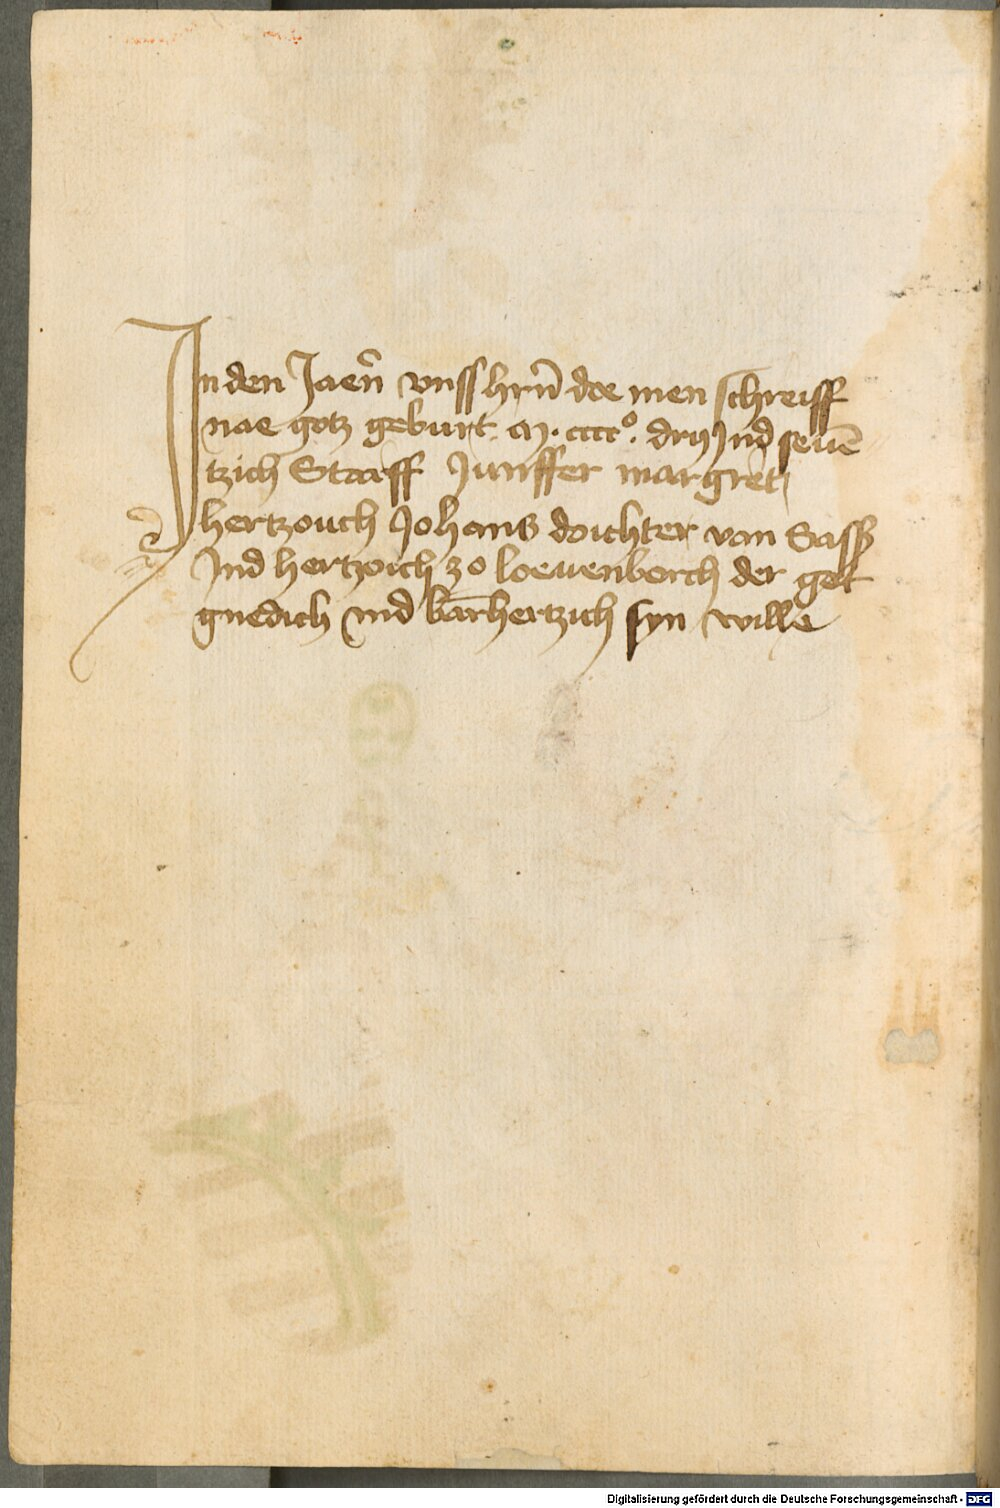 In den Jaeñ vnss hrn̄ doe men schreiff
nae gotz geburt. M. ccccº. dry Jnd seuē
tzich Starff Junffer margret
hertzouch Johans doichter van Sass
Jnd hertzoich zo loeuenborch der got
gnedich vnd bārhertzich syn wille
Digitalisierung gefördert durch die Deutsche Forschungsgemeinschaft - DFG